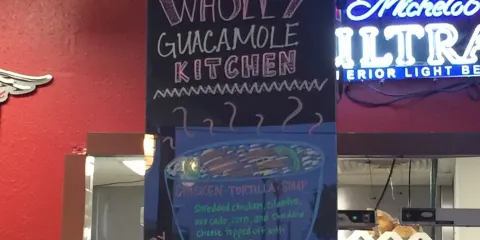 WHOLLY
GUACAMOLE
KITCHEN
CHICKEN-TORTILLA-SOUP
Shredded chicken, cilantro,
avocado, corn, and shredded
cheese topped off with
Michelob
ULTRA
SUPERIOR LIGHT BE